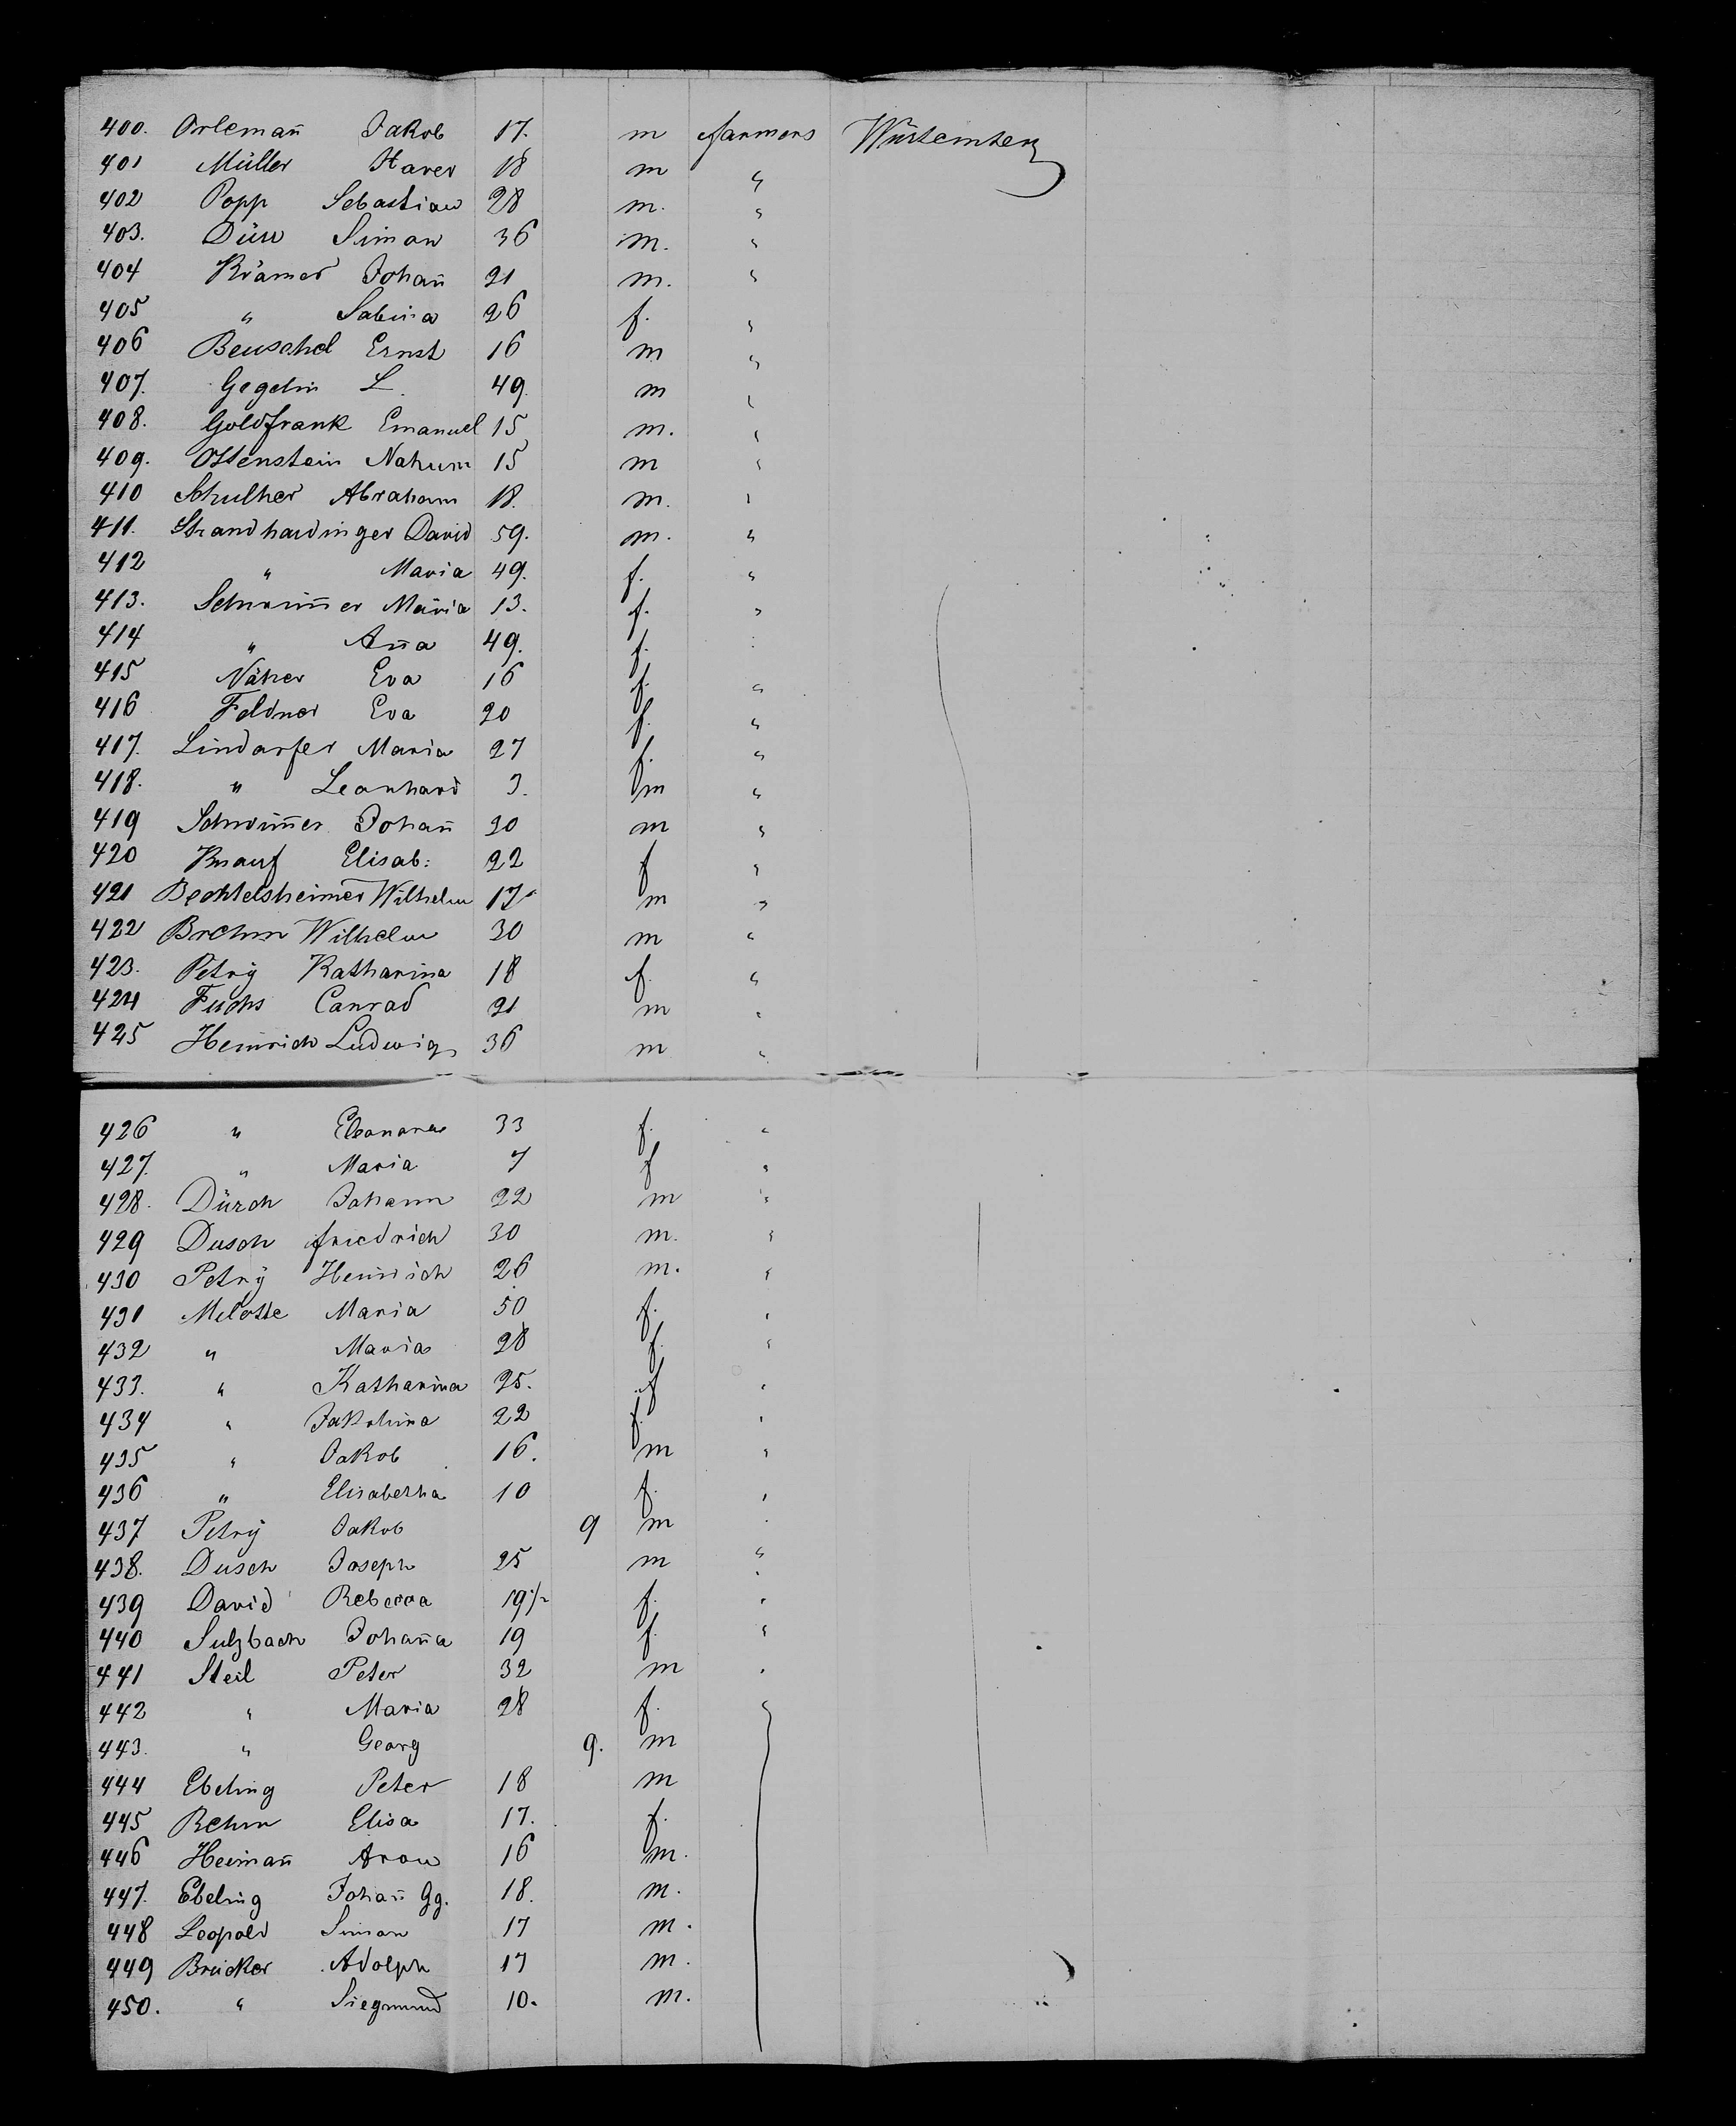 400. Orlemañ Jakob 17. m farmers Würtemberg
401 Müller Xaver 18 m "
402 Popp Sebastian 28 m. "
403. Dürr Simon 36 m. "
404 Krämer Johañ 21 m. "
405 " Sabina 26 f. "
406 Beuschel Ernst 16 m "
407. Gegelin L. 49. m "
408. Goldfrank Emanuel 15 m. "
409. Ottenstein Nahum 15 m "
410 Schulher Abraham 18. m. "
411. Strandhardinger David 59. m. "
412 " Maria 49. f. "
413. Schwim̃er Maria 13. f. "
414 " Añа 49. f. "
415 Näher Eva 16 f. "
416 Feldner Eva 20 f. "
417. Lindorfer Maria 27 f. "
418. " Leonhard 3. m "
419 Schwim̃er Johañ 20 m "
420 Knauf Elisab: 22 f "
421 Bechtelsheimer Wilhelm 17 m "
422 Brehm Wilhelm 30 m "
423. Petrÿ Katharina 18 f. "
424 Fuchs Conrad 21 m "
425 Heinrich Ludwig 36 m "
426 " Eleonora 33 f. "
427. " Maria 7 f "
428. Dürch Johann 22 m "
429 Dusch friedrich 30 m. "
430 Petrÿ Heinrich 26 m. "
431 Melotte Maria 50 f. "
432 " Maria 28 f. "
433. " Katharina 25. f "
434 " Jakobina 22 f. "
435 " Jakob 16. m "
436 " Elisabetha 10 f. "
437 Petrÿ Jakob 9 m "
438. Dusch Joseph 25 m "
439 David Rebecca 19½ f. "
440 Sulzbach Johaña 19 f. "
441 Steil Peter 32 m "
442 " Maria 28 f. "
443. " Georg 9. m
444 Ebeling Peter 18 m
445 Rehm Elisa 17. f.
446 Heimañ Aron 16 m.
447. Ebeling Johañ Gg. 18. m.
448 Leopold Simon 17 m.
449 Brücker Adolph 17 m.
450. " Siegmund 10. m.